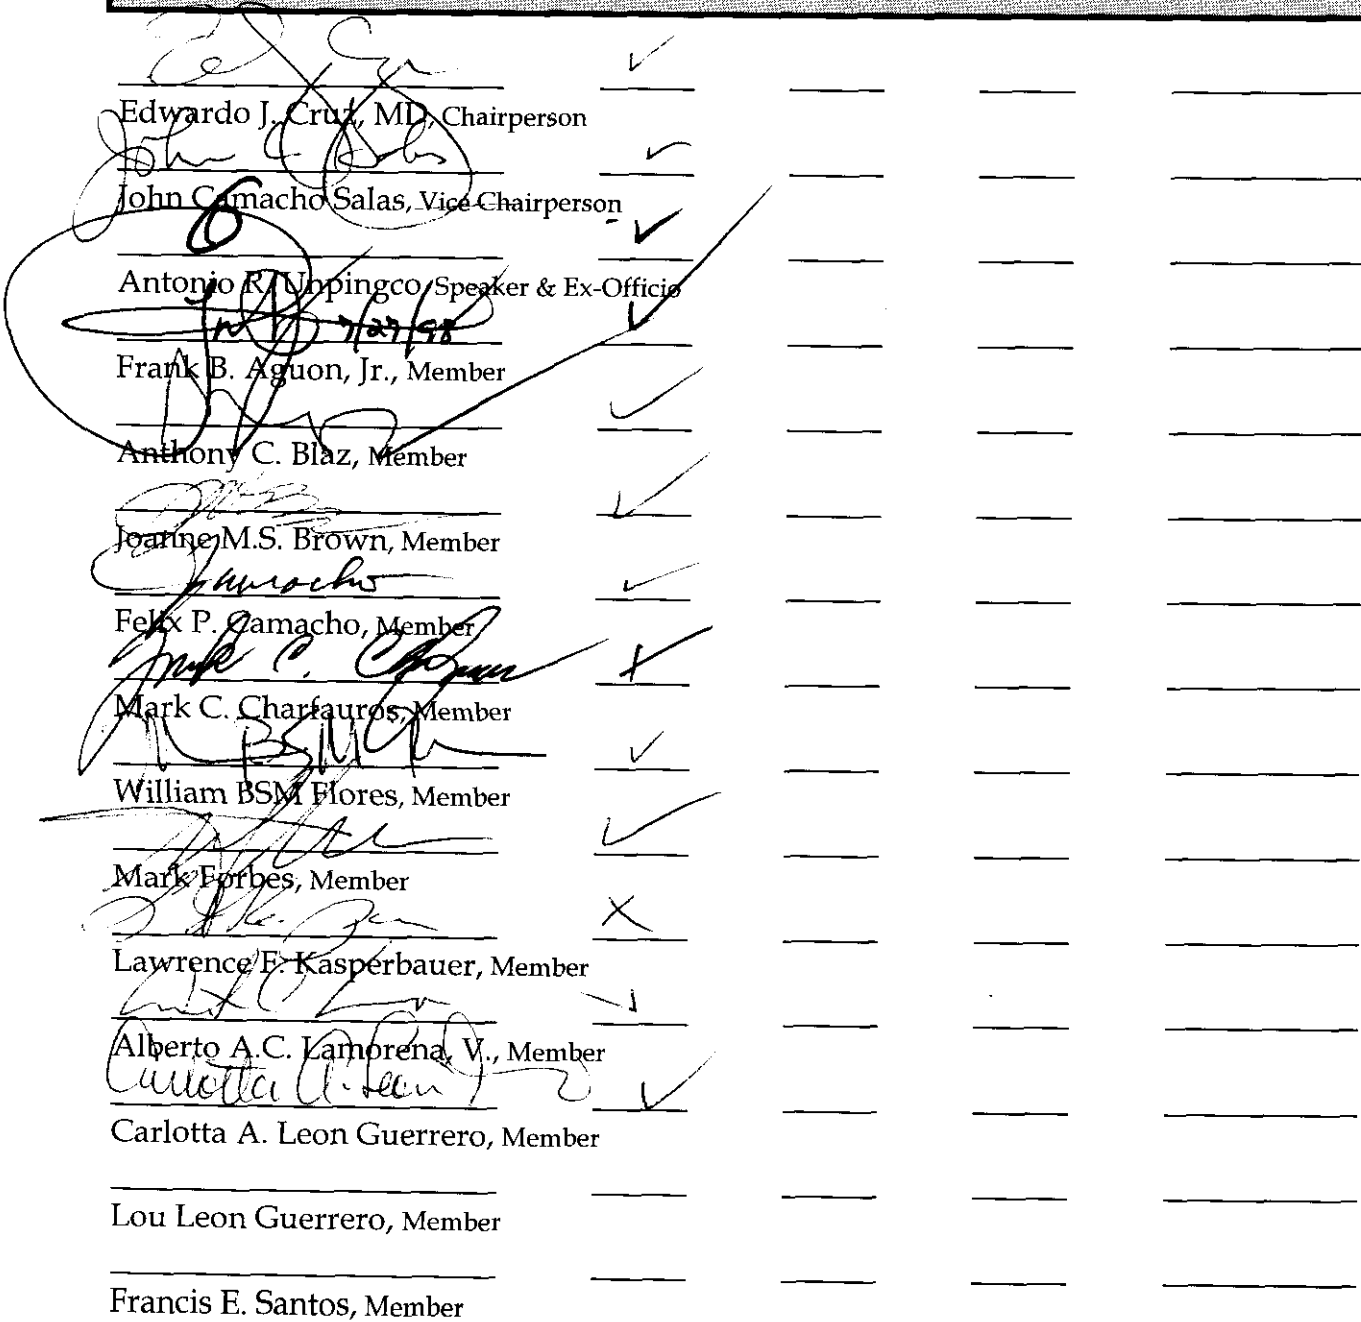 Edwardo J. Cruz, MD, Chairperson
John C Salas
John Camacho Salas, Vice Chairperson
Antonio R. Unpingco, Speaker & Ex-Officio
7/27/98
Frank B. Aguon, Jr., Member
Anthony C. Blaz, Member
Joanne M.S. Brown, Member
Camacho
Felix P. Camacho, Member
Mark C. Charfauros
Mark C. Charfauros, Member
BSM
William BSM Flores, Member
Mark Forbes, Member
Lawrence F. Kasperbauer, Member
Alberto A.C. Lamorena, V., Member
Carlotta A. Leon
Carlotta A. Leon Guerrero, Member
Lou Leon Guerrero, Member
Francis E. Santos, Member